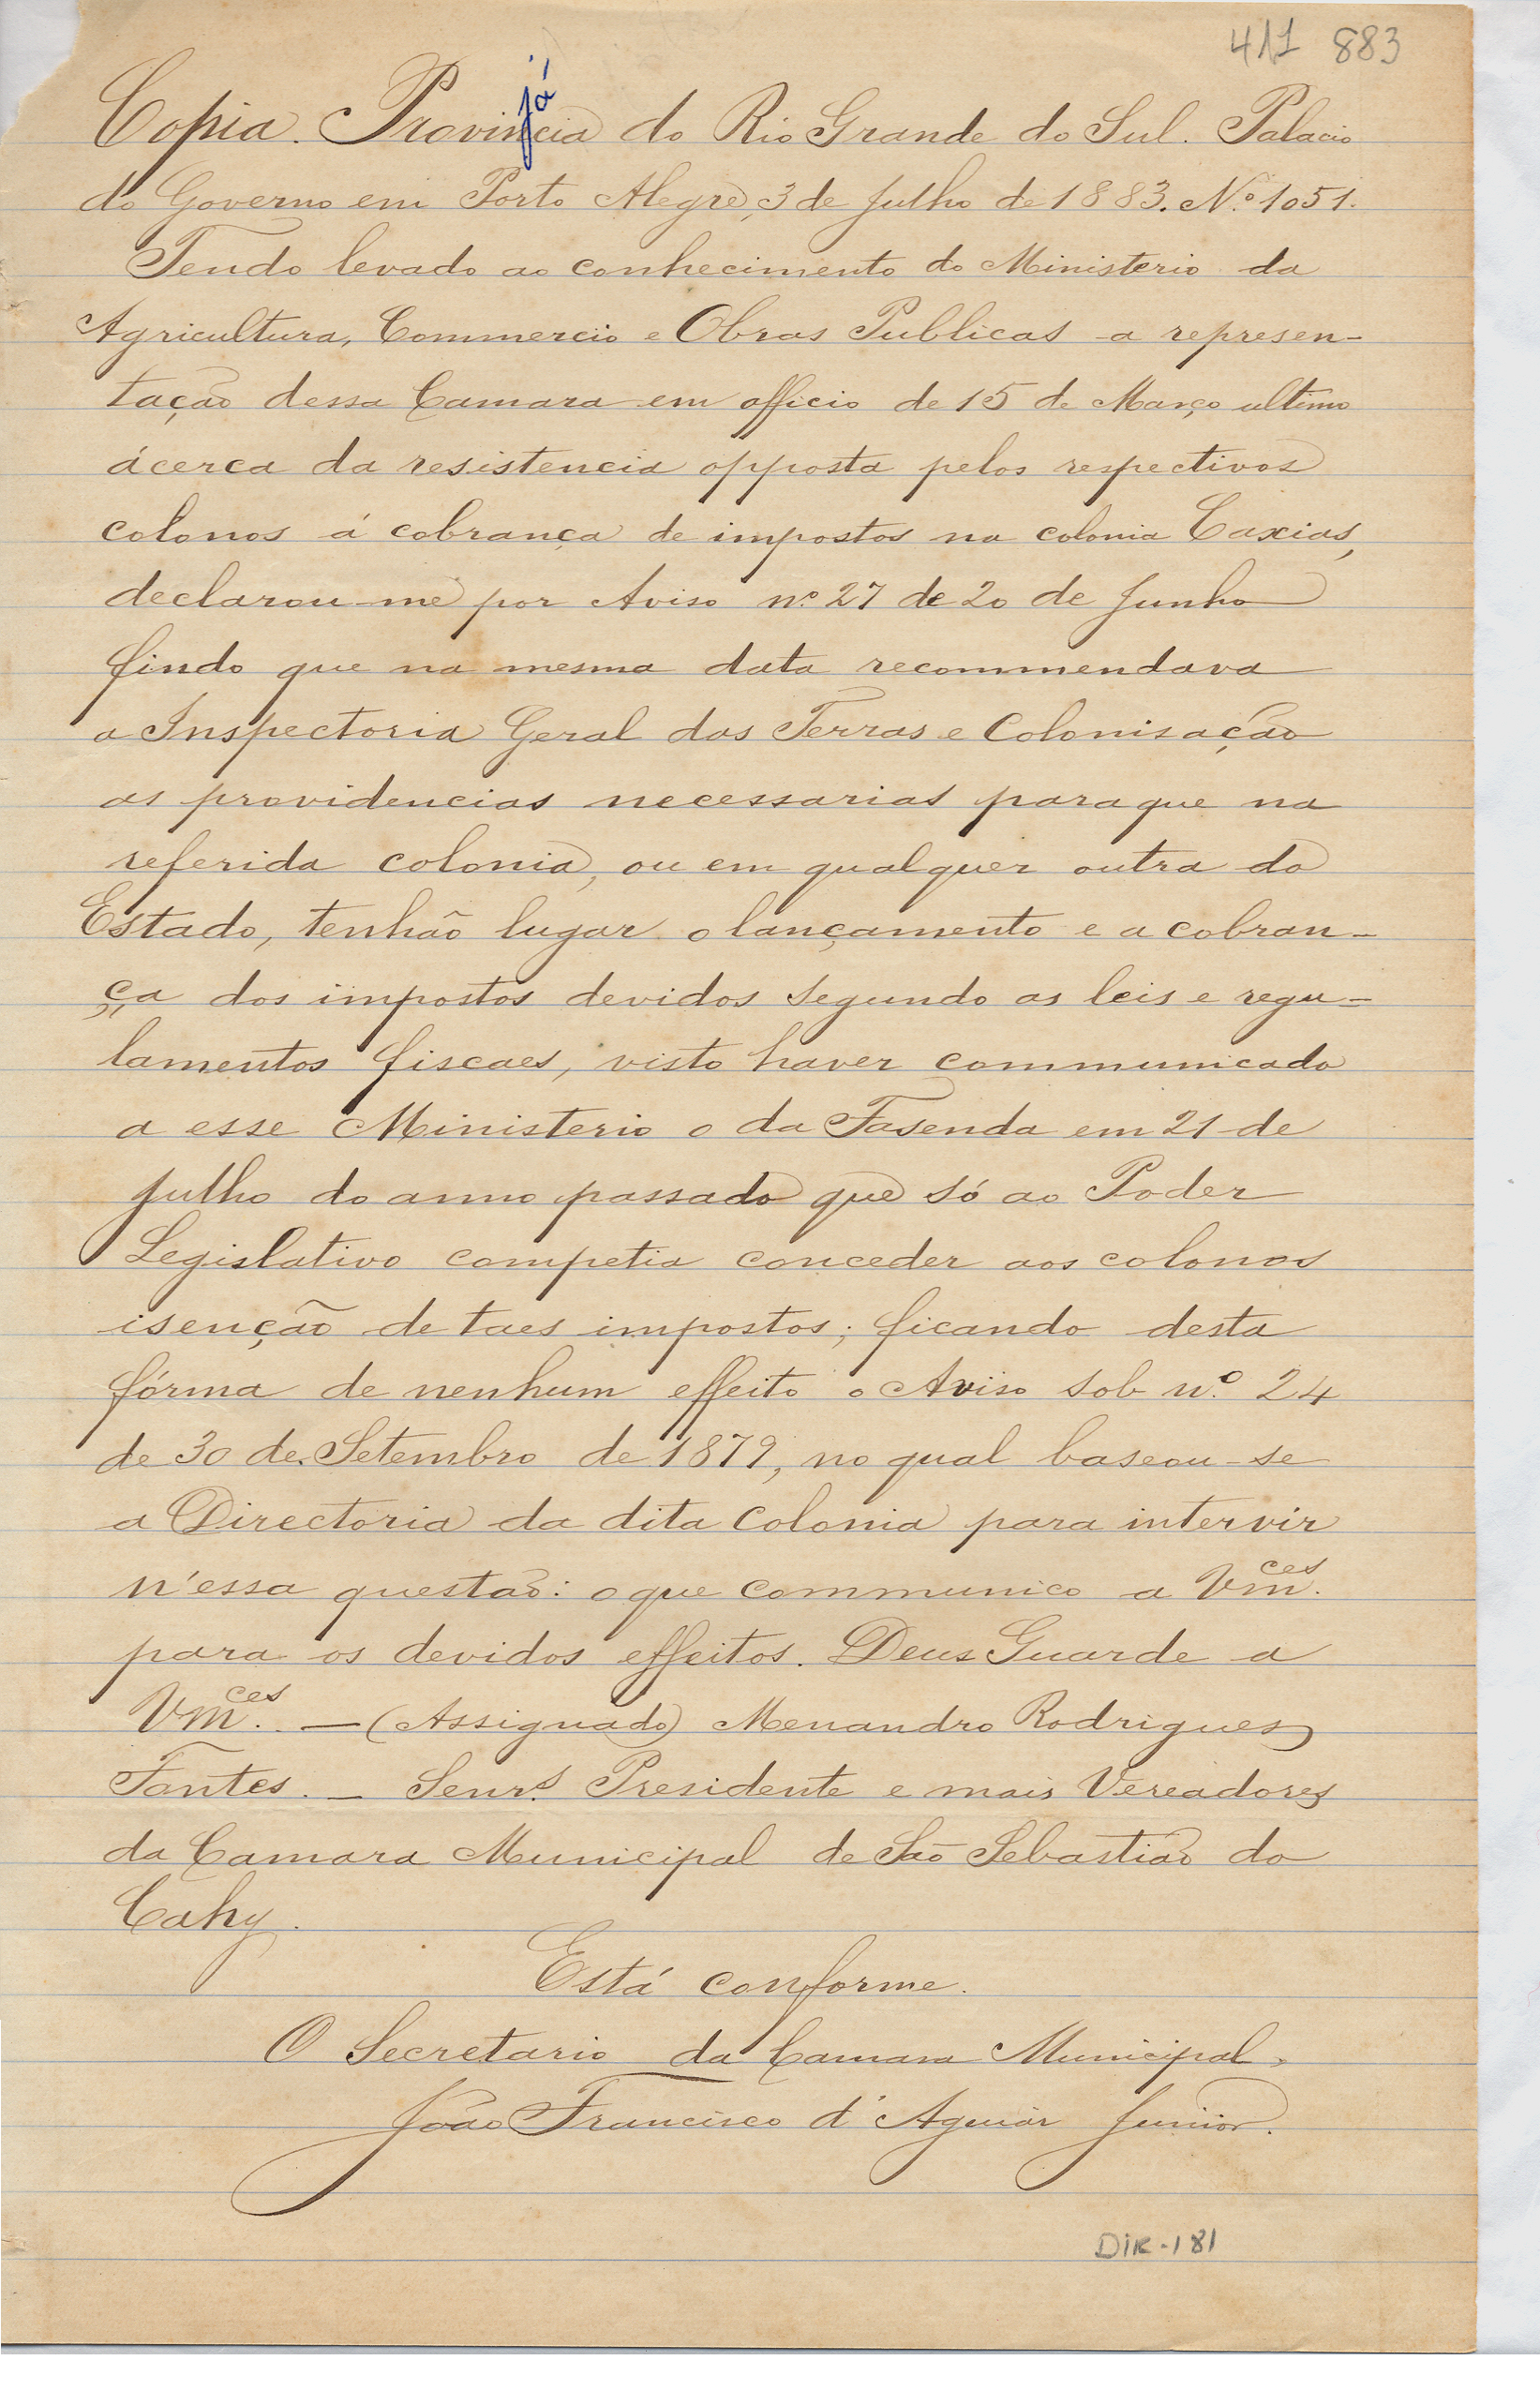 411 883
já
Copia. Provincia do Rio Grande do Sul. Palacio
do Governo em Porto Alegre, 3 de Julho de 1883. Nº 1051.
Tendo levado ao conhecimento do Ministerio da
Agricultura, Commercio e Obras Publicas a represen-
tação dessa Camara em officio de 15 de Março ultimo
ácerca da resistencia opposta pelos respectivos
colonos á cobrança de impostos na colonia Caxias,
declarou-me por Aviso nº 27 de 20 de Junho
findo que na mesma data recommendava
a Inspectoria Geral das Terras e Colonisação
as providencias necessarias paraque na
referida colonia, ou em qualquer outra do
Estado, tenhão lugar o lançamento e a cobran-
ça dos impostos devidos segundo as leis e regu-
lamentos fiscaes, visto haver communicado
a esse Ministerio o da Fasenda em 21 de
Julho do anno passado que só ao Poder
Legislativo competia conceder aos colonos
isenção de taes impostos; ficando desta
fórma de nenhum effeito o Aviso sob nº 24
de 30 de Setembro de 1879, no qual baseou-se
a Directoria da dita Colonia para intervir
n'essa questão: o que communico a Vm.ces
para os devidos effeitos. Deus Guarde a
Vm.ces — (Assignado) Menandro Rodrigues
Fontes. — Senr.s Presidente e mais Vereadores
da Camara Municipal de São Sebastião do
Cahy.
Está conforme.
O Secretario da Camara Municipal,
João Francisco d'Aguiar Junior.
DIR-181